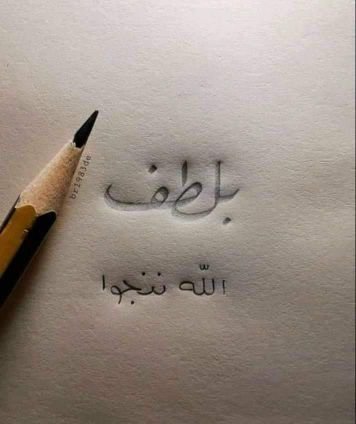 بلطف
الله ننجوا
br198jde